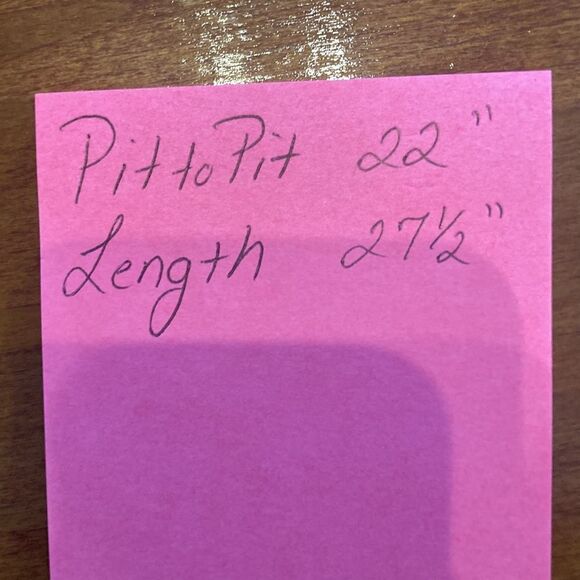 Pit to Pit 22"
Length 27½"